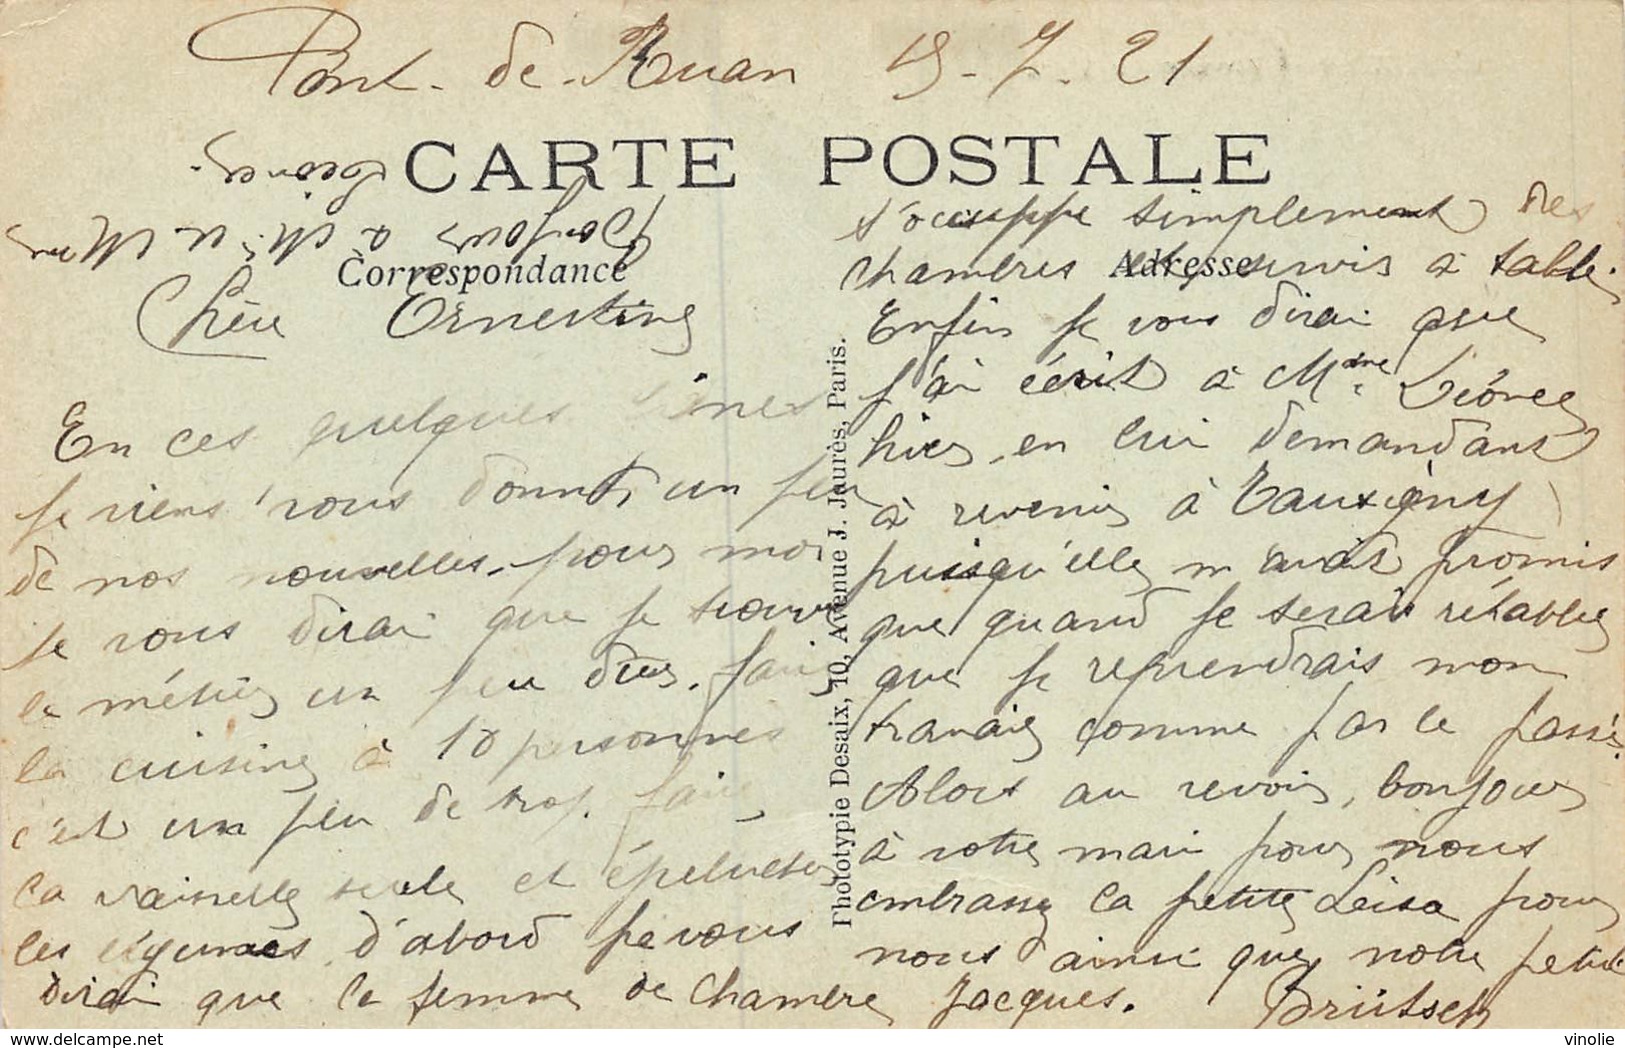 Pont-de-Ruan 19-7-21
CARTE POSTALE
Correspondance
Adresse
Bonjour à Mr et Mme
Chère Ernestine
En ces quelques lignes
je viens vous donnér un peu
de nos nouvelles. pour moi
je vous dirai que je trouve
le métier un peu dur. faire
la cuisine à 10 personnes
c'est un peu de trop. faire
la vaiselle seule et épelucher
les légumes d'abord je vous
dirai que la femme de chambre
s'ocuppe simplement des
chambres et servir à table.
Enfin je vous dirai que
j'ai écrit à Mdme
hier, en lui demandant
à revenir à Tauxigny
puisqu'elle m'avait promis
que quand je serais rétablie
que je reprendrais mon
travail comme par le passé.
Alors au revoir, bonjour
à votre mari pour nous
embrasse la petite Léisa pour
nous ainsi que notre petit
Jacques. Brütsch
Phototypie Desaix, 10, Avenue J. Jaurès, Paris.
vinolie